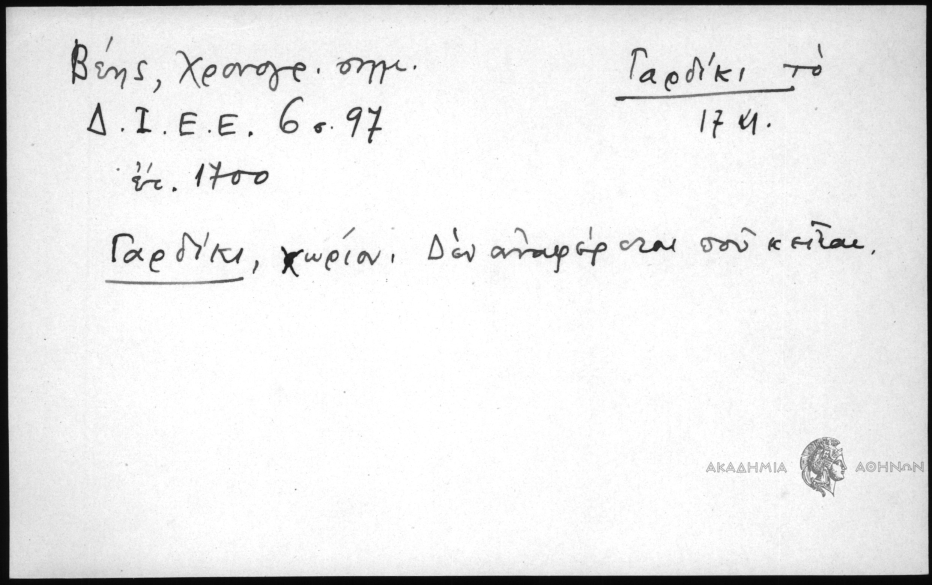 Βέης, χρονογρ. σημ.
Γαρδίκι τὸ
Δ.Ι.Ε.Ε. 6 σ. 97
17
ἔτ. 1700
Γαρδίκι, χωρίον. Δὲν ἀναφέρεται ποῦ κεῖται.
ΑΚΑΔΗΜΙΑ ΑΘΗΝΩΝ